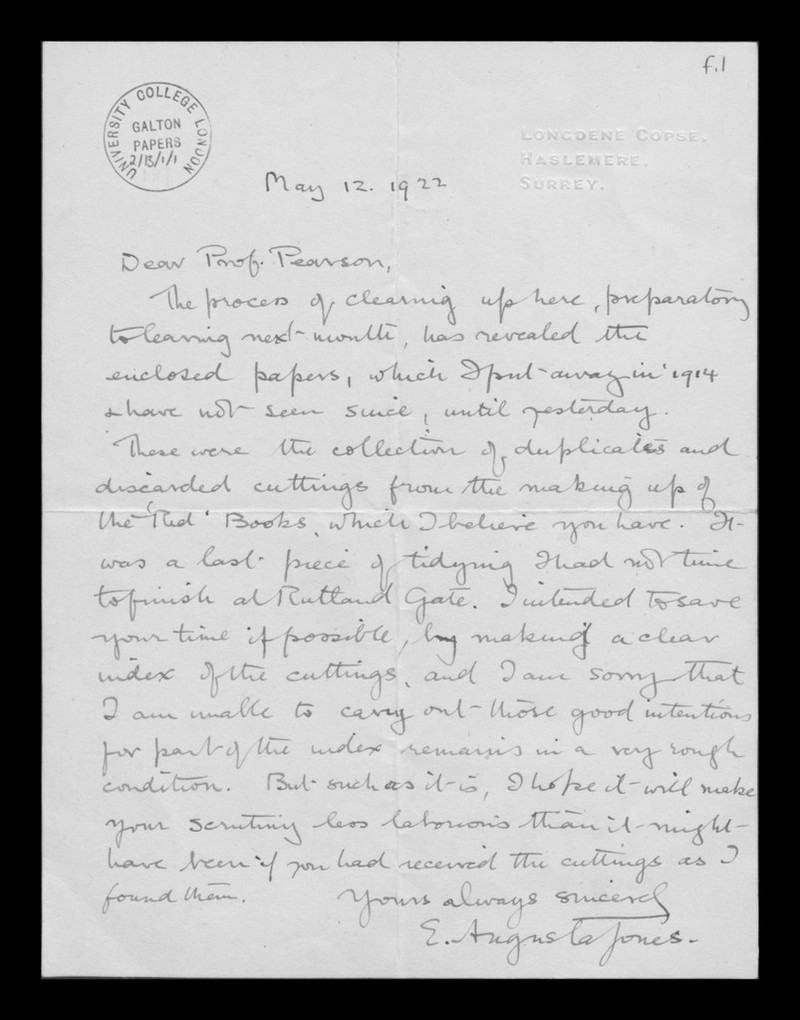 f.1
UNIVERSITY COLLEGE LONDON
GALTON
PAPERS
2/13/1/1
LONGDENE COPSE.
HASLEMERE.
SURREY.
May 12. 1922
Dear Prof. Pearson,
The process of clearing up here, preparatory
to leaving next month, has revealed the
enclosed papers, which I put away in 1914
& have not seen since, until yesterday.
These were the collection of duplicates and
discarded cuttings from the making up of
the 'Red' Books, which I believe you have. It
was a last piece of tidying I had not time
to finish at Rutland Gate. I intended to save
your time if possible, by making a clear
index of the cuttings, and I am sorry that
I am unable to carry out those good intentions
for part of the index remains in a very rough
condition. But such as it is, I hope it will make
your scrutiny less laborious than it might
have been if you had received the cuttings as I
found them. Yours always sincerely
E. Augusta Jones.